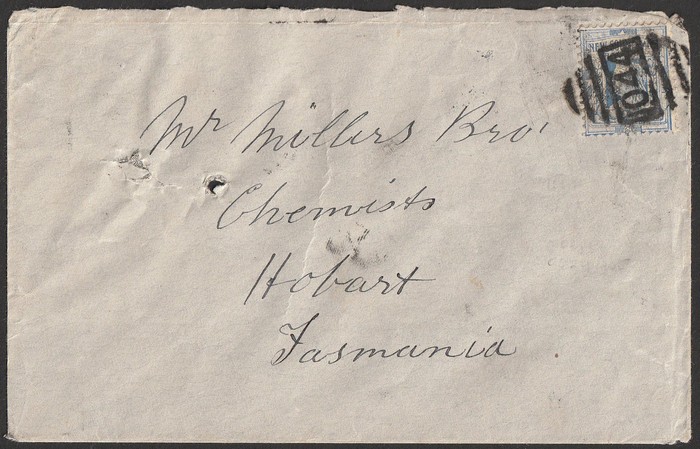 NEW SO
1044
Mr Millers Bro'
Chemists
Hobart
Tasmania